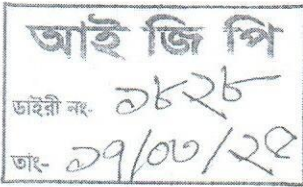 আই জি পি
ডাইরী নং- ১৮২৮
তাং- ১৭/০৩/২৫